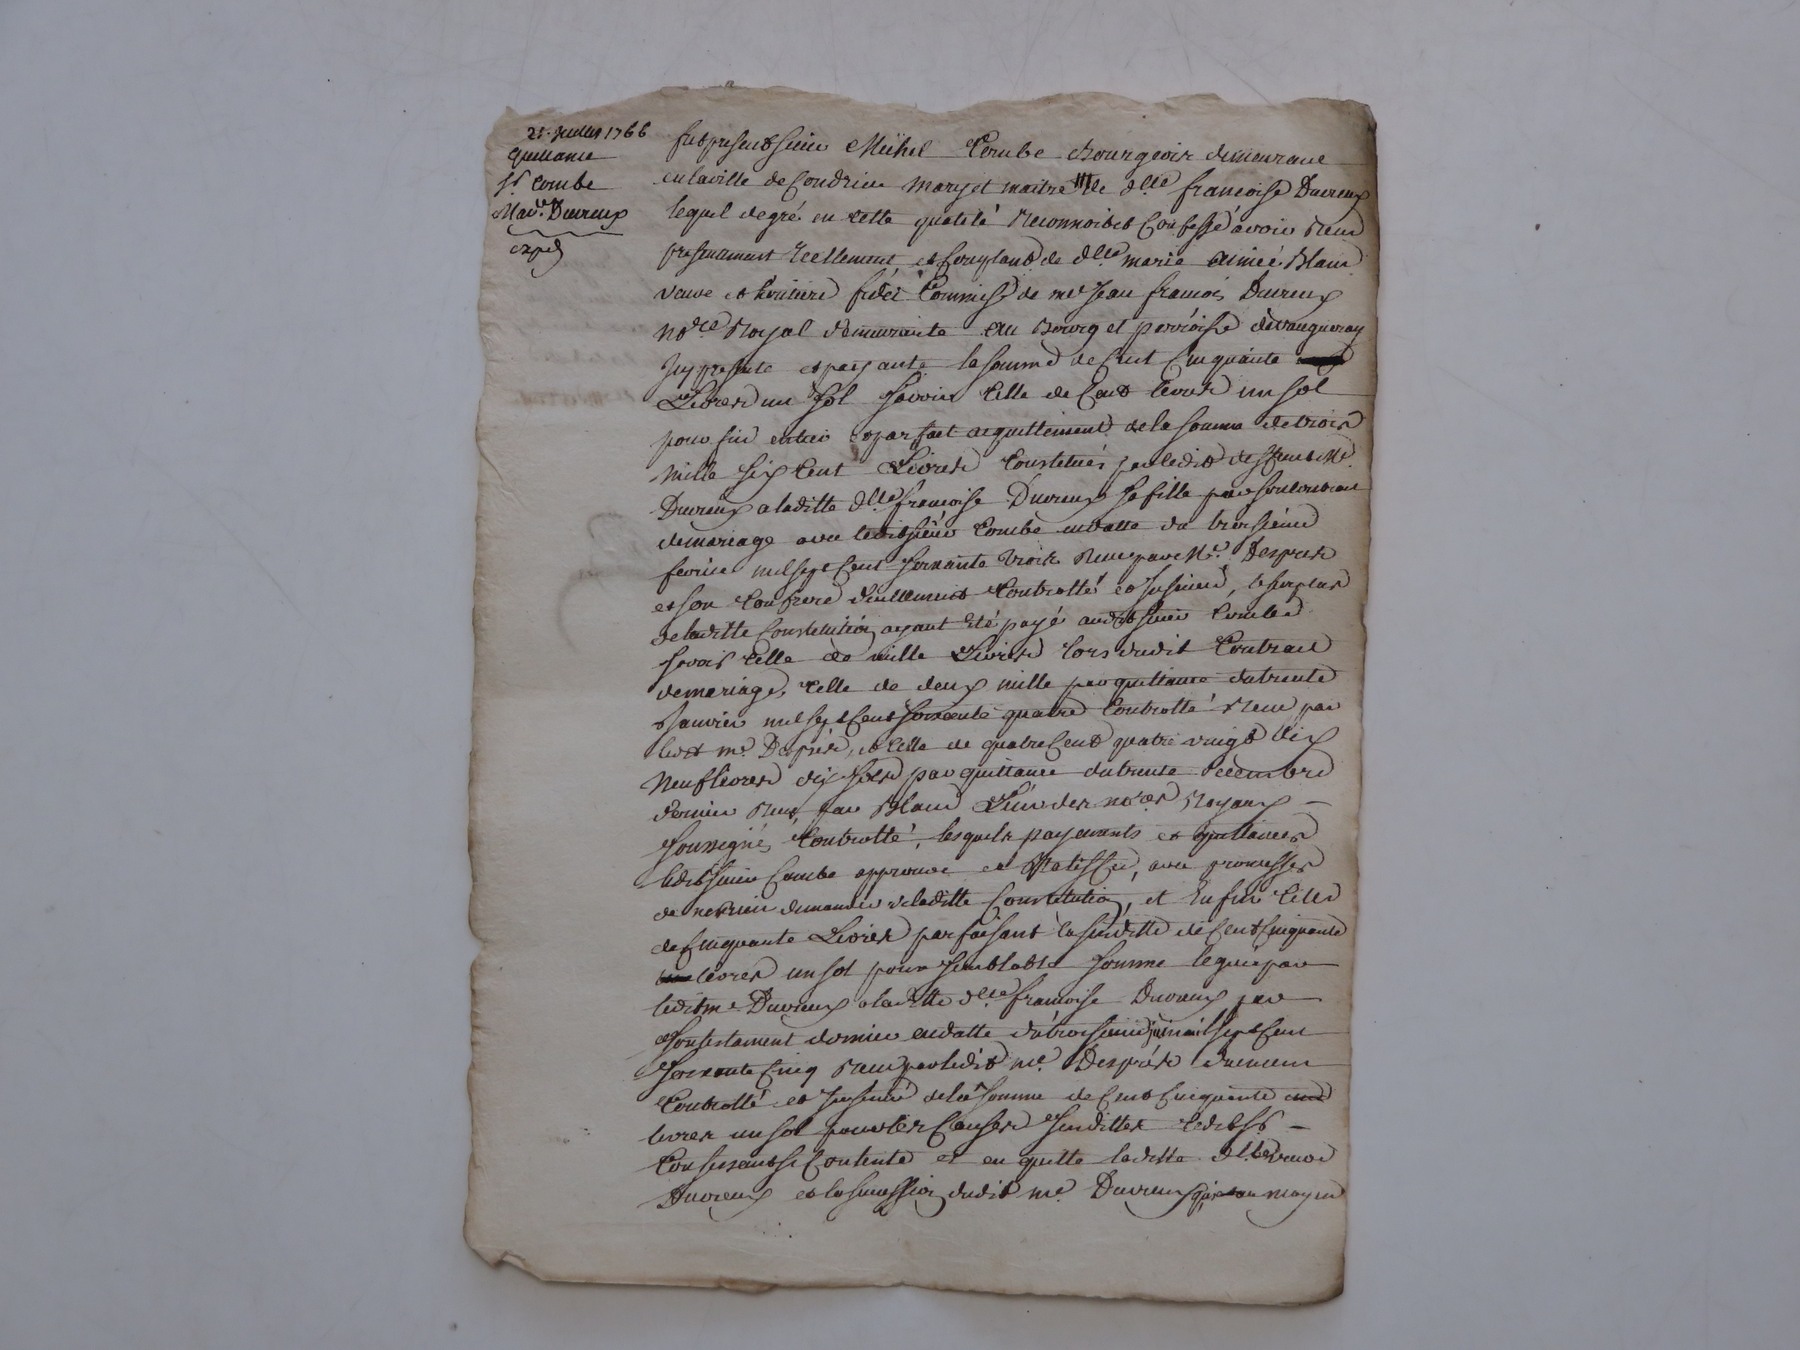 25 Juillet 1766
Quittance
Sr Combe
Made Duvreux
expd
fut present sieur Michel Combe Bourgeois demeurant
en la ville de Condrieu mary et maitre de dlle francoise Duvreux
lequel de gré en cette qualité Reconnoit et Confesse avoir Receu
presentement Reellement et Comptant de dlle marie aimée Blanc
veuve et heritiere fidei Commise de me Jean francois Duvreux
nore Royal demeurante au Bourg et parroisse de vaugneray
Icy presente et payante la somme de Cent Cinquante
Livres un sol savoir celle de Cent livres un sol
pour fin entier et parfait acquittement de la somme de trois
mille six Cent Livres Constitués par ledit deffunt Me
Duvreux a laditte dlle francoise Duvreux sa fille par son contract
de mariage avec ledit sieur Combe en datte du troisieme
fevrier mil sept Cent soixante trois Receu par Me Desprès
et son Confrere duement Controllé et Insinué, le surplus
de laditte Constitution ayant été payé audit sieur Combe
savoir celle de mille Livres lors dudit Contract
de mariage, celle de deux mille par quittance du trente
Janvier mil sept Cent soixante quatre Controllé Receu par
ledit me Desprès, et celle de quatre Cent quatre vingt dix
Neuf livres dix neuf sols par quittance du trente decembre
dernier Receu par Blanc L'un des nores Royaux
soussignés Controllé, lesquels payements et quittances
ledit sieur Combe approuve et Ratiffie, avec promesses
de ne Rien demander de laditte Constitution, et Enfin celle
de Cinquante Livres parfaisant la susditte de Cent Cinquante
livres un sol pour semblable somme leguée par
ledit me Duvreux a laditte dlle francoise Duvreux par
son testament dernier en datte du troisieme juin mil sept Cent
soixante Cinq Receu par ledit me Desprès duement
Controllé et Insinué de la somme de Cent Cinquante
livres un sol pour les Causes susdittes ledit sr
Combe se Contente et en quitte laditte dlle veuve
Duvreux et la succession dudit me Duvreux qui au moyen